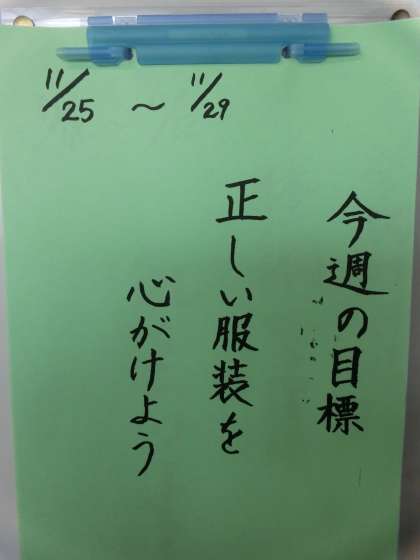 11/25 ～ 11/29
今週の目標
正しい服装を
心がけよう